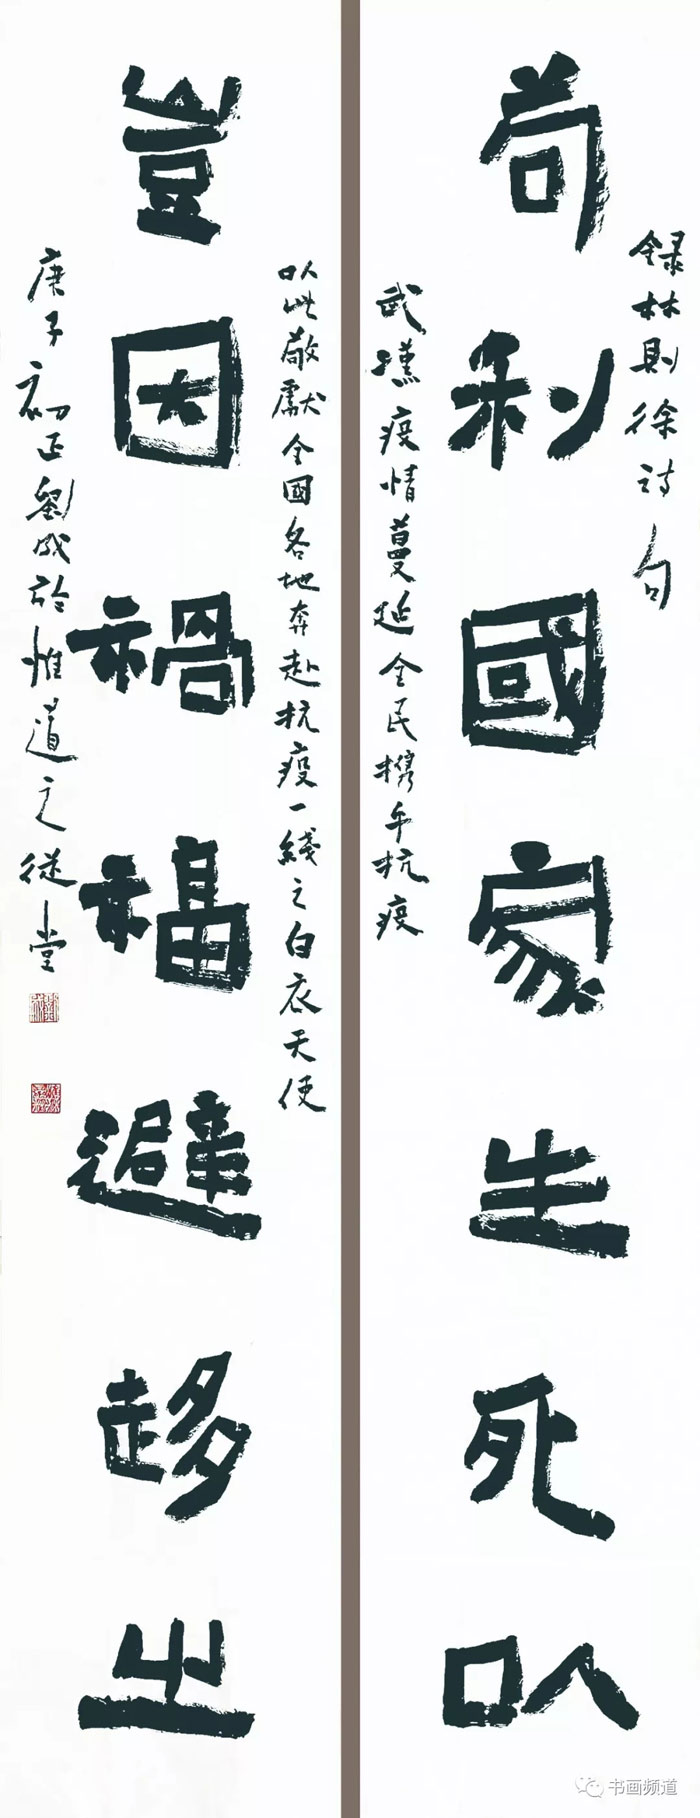 苟利國家生死以
録林則徐詩句
武漢疫情蔓延全民攜手抗疫
豈因禍福避趨之
以此敬獻全國各地奔赴抗疫一綫之白衣天使
庚子初正劉成於惟道之從堂
书画频道